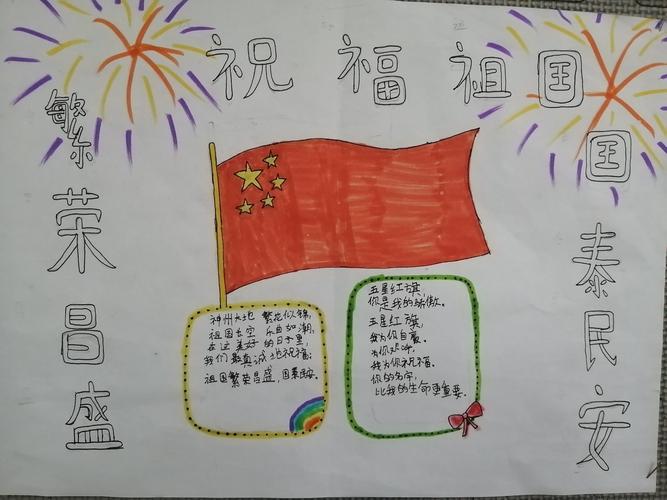 祝福祖国
繁荣昌盛
国泰民安
神州大地 繁花似锦,
祖国长空 乐曲如潮,
在这美好的日子里,
我们最真诚地祝福:
祖国繁荣昌盛,国泰民安。
五星红旗,
你是我的骄傲。
五星红旗,
我为你自豪。
为你欢呼,
我为你祝福。
你的名字,
比我的生命更重要。